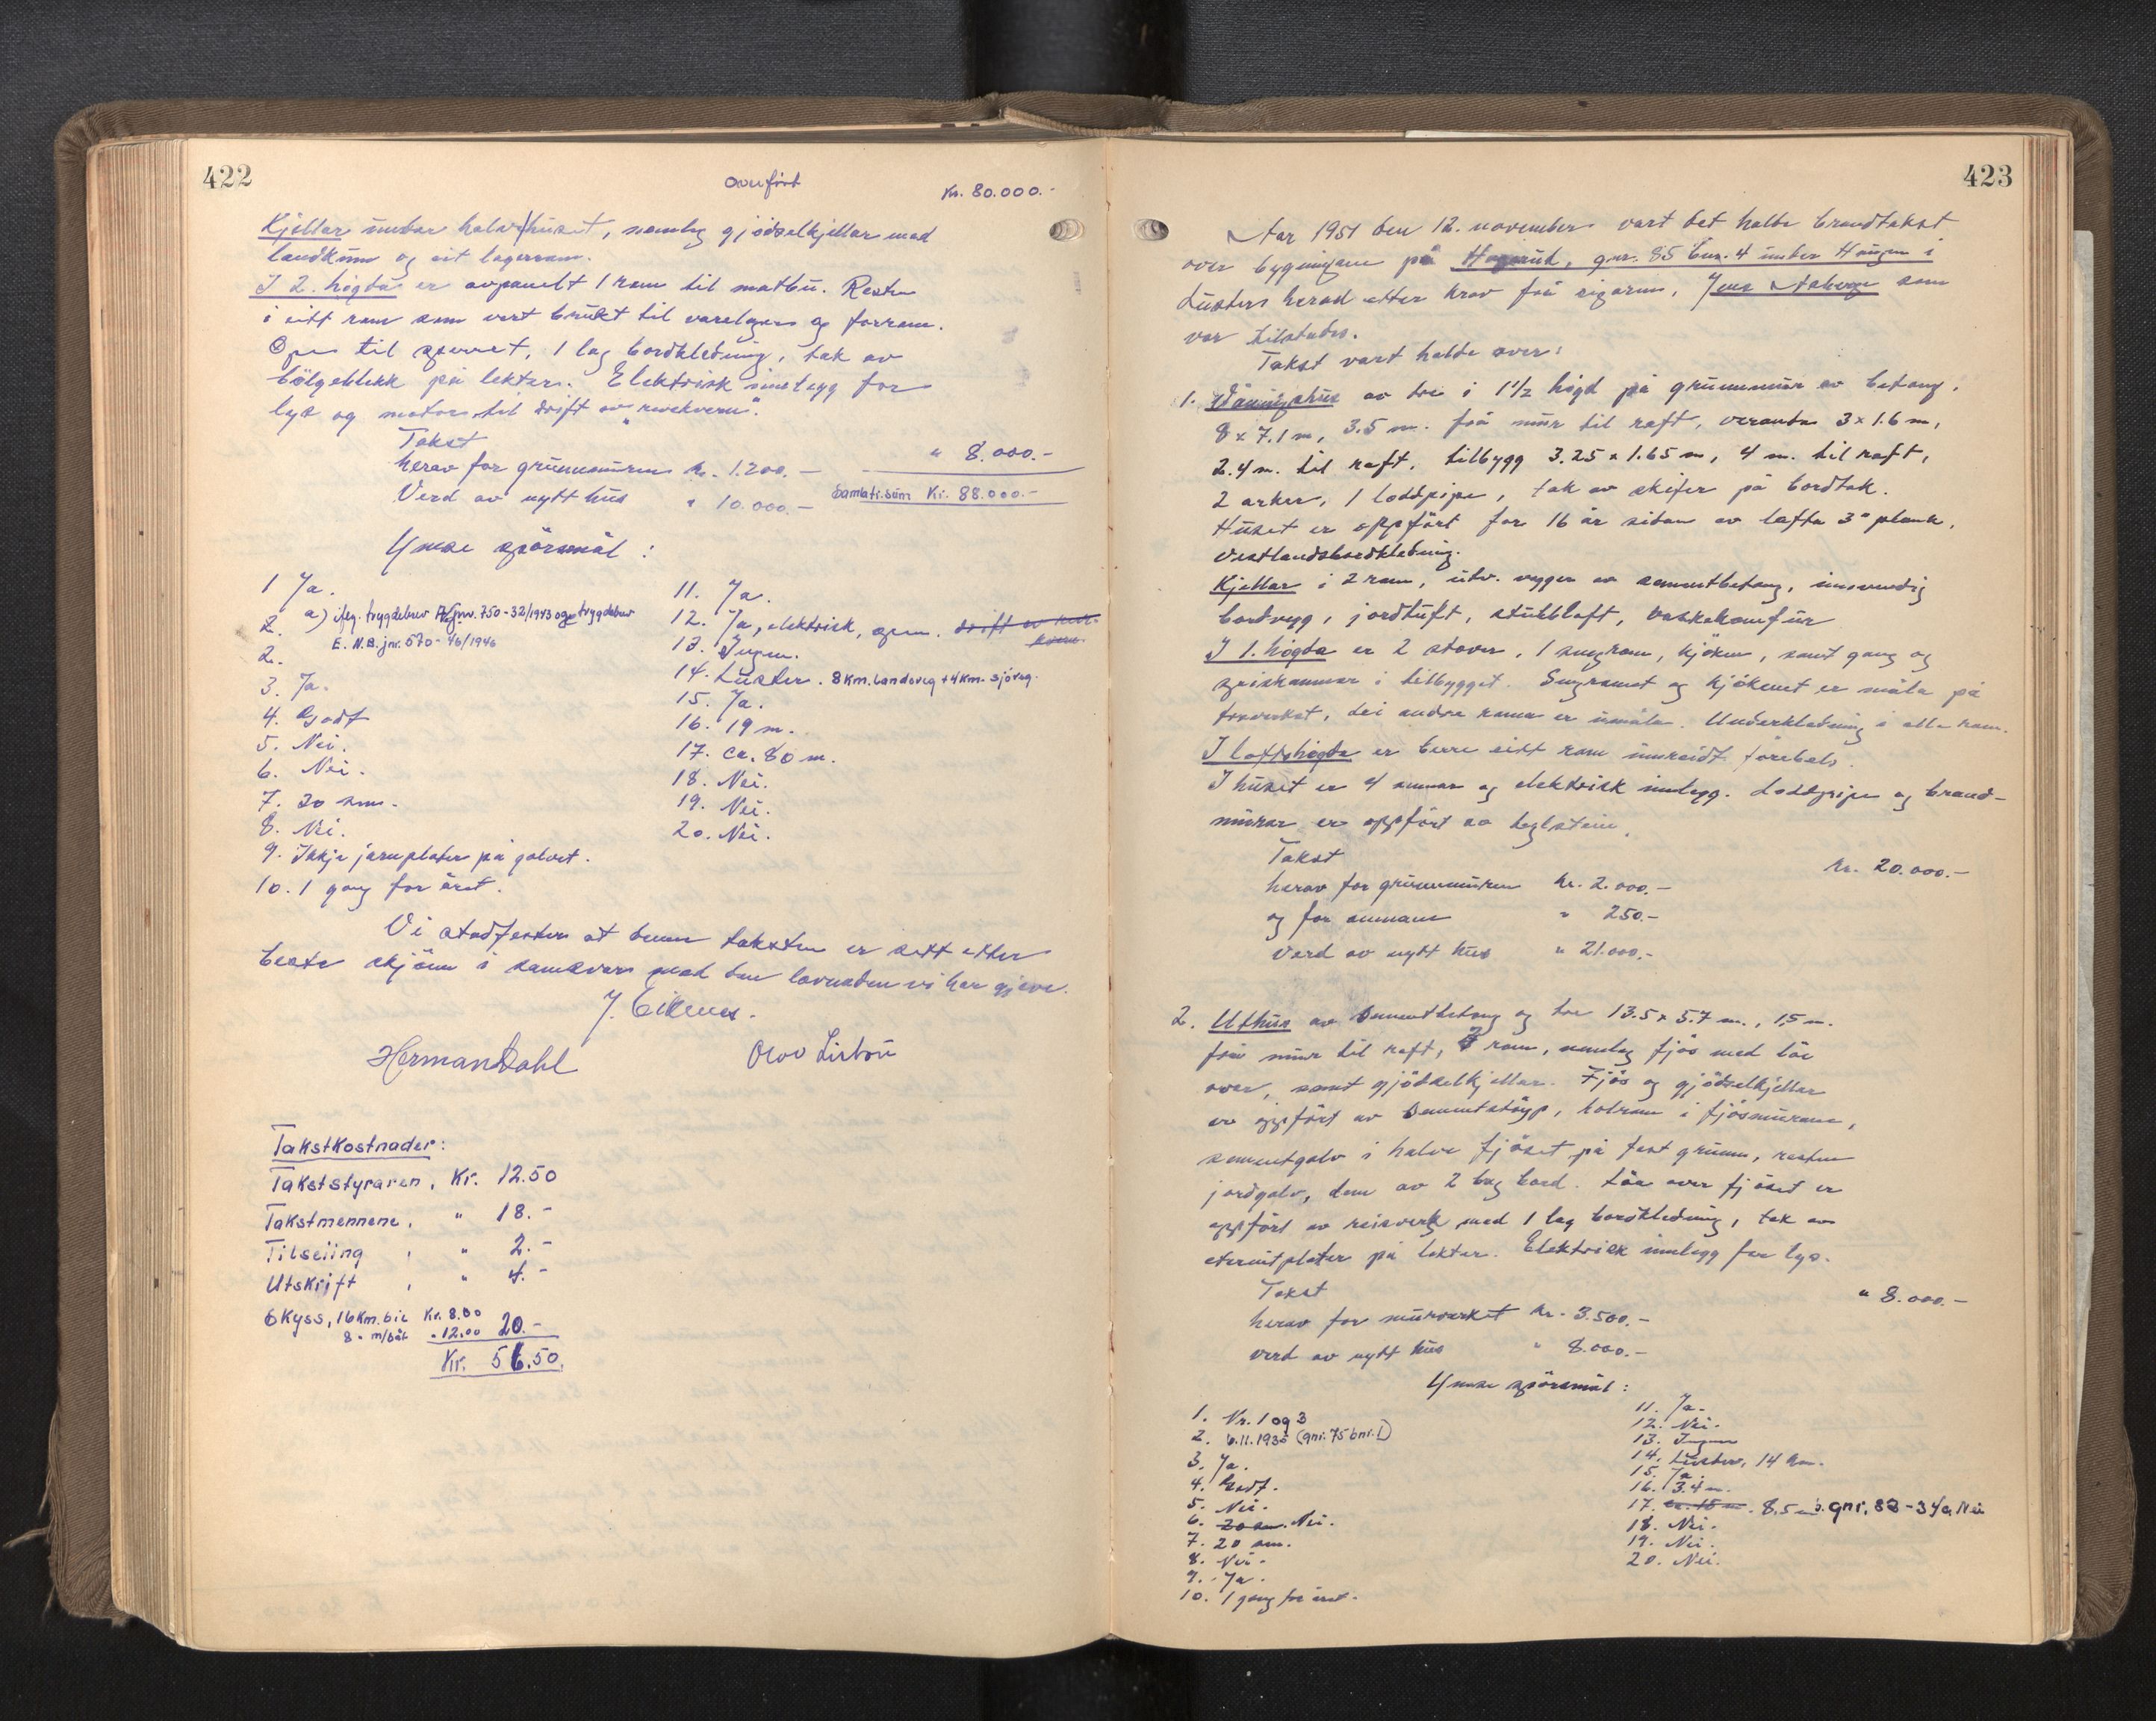 422
Overfört
Kr. 80.000.-
Kjellar under halve huset, nemleg gjödselkjellar med
landkum og eit lagerrom.
I 2. högda er avpanelt 1 rom til matbu. Resten
i eitt rom som vert brukt til varelager og forrom.
Ope til sperret, 1 lag bordkledning, tak av
bölgeblekk på lekter. Elektrisk innlegg for
lys og motor til drift av "revekvern".
Takst " 8.000.-
herav for grunnmuren kr. 1.200.-
Verd av nytt hus " 10.000.- Samla tr.sum Kr. 88.000.-
Ymse spörsmål:
1 Ja.
2. a) ifleg. trygdebrev jnr. 750-32/1943 og trygdebrev
E. N.B. jnr. 570-46/1946
2.
3. Ja.
4. Godt
5. Nei.
6. Nei.
7. 20 sm.
8. Nei.
9. Ikkje jarnplater på golvet.
10. 1 gong for året.
11. Ja.
12. Ja, elektrisk, open. drift av rev-
kvern.
13. Ingen.
14. Luster. 8 km. landsveg + 4 km. sjöveg.
15. Ja.
16. 19 m.
17. Ca. 80 m.
18. Nei.
19. Nei.
20. Nei.
Vi stadfester at denne taksten er sett etter
beste skjönn i samsvar med den lovnaden vi har gjeve.
J. Eikenes.
Herman Dahl Olav Lirhou
Takstkostnader:
Takststyraren, Kr. 12.50
Takstmennene, " 18.-
Tilseiing, " 2.-
Utskrift, " 4.-
Skyss, 16 km. bil Kr. 8.00
8 " m/båt " 12.00 20.-
Kr. 56.50.
423
Aar 1951 den 12. november vart det halde brandtakst
over bygningane på Haugrud, gnr. 85 bnr. 4 under Haugen i
Lusters herad etter krav frå eigaren, Jens Aaberge som
var tilstades.
Takst vart halde over:
1. Våningshus av tre i 1 1/2 högd på grunnmur av betong.
8 x 7.1 m, 3.5 m. frå mur til raft, veranda 3 x 1.6 m,
2.4 m. til raft, tilbygg 3.25 x 1.65 m, 4 m. til raft,
2 arker, 1 loddpipe, tak av skifer på bordtak.
Huset er oppfört for 16 år sidan av lafta 3" plank,
vestlandsbordkledning.
Kjellar i 2 rom, utv. vegger av sementbetong, innvendig
bordvegg, jordtuft, stubbloft, vaskekomfur
I 1. högda er 2 stover, 1 sengrom, kjöken, samt gang og
spiskammer i tilbygget. Sengromet og kjökenet er måla på
treverket, dei andre romma er umåla. Underkledning i alle rom.
I loftshögda er berre eitt rom innreidt förebels.
I huset er 4 omnar og elektrisk innlegg. Loddpipe og brand-
murar er oppfört av teglstein.
Takst kr. 20.000.-
herav for grunnmuren kr. 2.000.-
og for omnane " 250.-
Verd av nytt hus " 21.000.-
2. Uthus av sementbetong og tre 13.5 x 5.7 m., 1,5 m.
frå mur til raft, 3 rom, nemleg fjös med löe
over, samt gjödselkjellar. Fjös og gjödselkjellar
er oppfört av sementstöyp, holrom i fjösmurane,
sementgolv i halve fjöset på fast grunn, resten
jordgolv, dem av 2 lag bord. Löa over fjöset er
oppfört av reisverk med 1 lag bordkledning, tak av
eternitplater på lekter. Elektrisk innlegg for lys.
Takst " 8.000.-
herav for murverket kr. 3.500.-
verd av nytt hus " 8.000.-
Ymse spörsmål:
1. Nr. 1 og 3
2. 6.11.1935 (gnr. 75 bnr. 1)
3. Ja.
4. Godt.
5. Nei.
6. 20 sm. Nei.
7. 20 sm.
8. Nei.
9. Ja.
10. 1 gong for året.
11. Ja.
12. Nei.
13. Ingen
14. Luster, 14 km.
15. Ja.
16. 3.4 m.
17. ca. 15 m. 8.5 m b. gnr. 83-3 Ja, Nei
18. Nei.
19. Nei.
20. Nei.